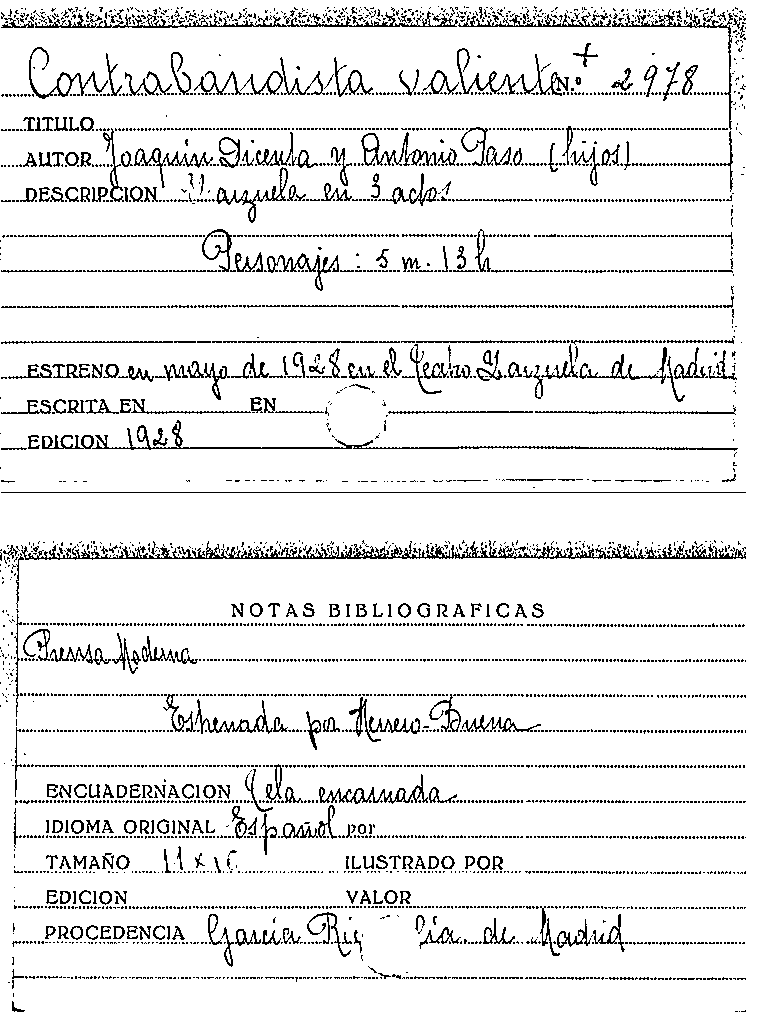 Contrabandista valiente N.º 2978
TITULO
AUTOR Joaquín Dicenta y Antonio Paso (hijos)
DESCRIPCION Zarzuela en 3 actos
Personajes: 5 m. 13 h
ESTRENO en mayo de 1928 en el Teatro Zarzuela de Madrid
ESCRITA EN EN
EDICION 1928
NOTAS BIBLIOGRAFICAS
Prensa Moderna
Estrenada por Herrero-Buena
ENCUADERNACION Tela encarnada
IDIOMA ORIGINAL Español por
TAMAÑO 11 x
ILUSTRADO POR
EDICION VALOR
PROCEDENCIA García de Madrid